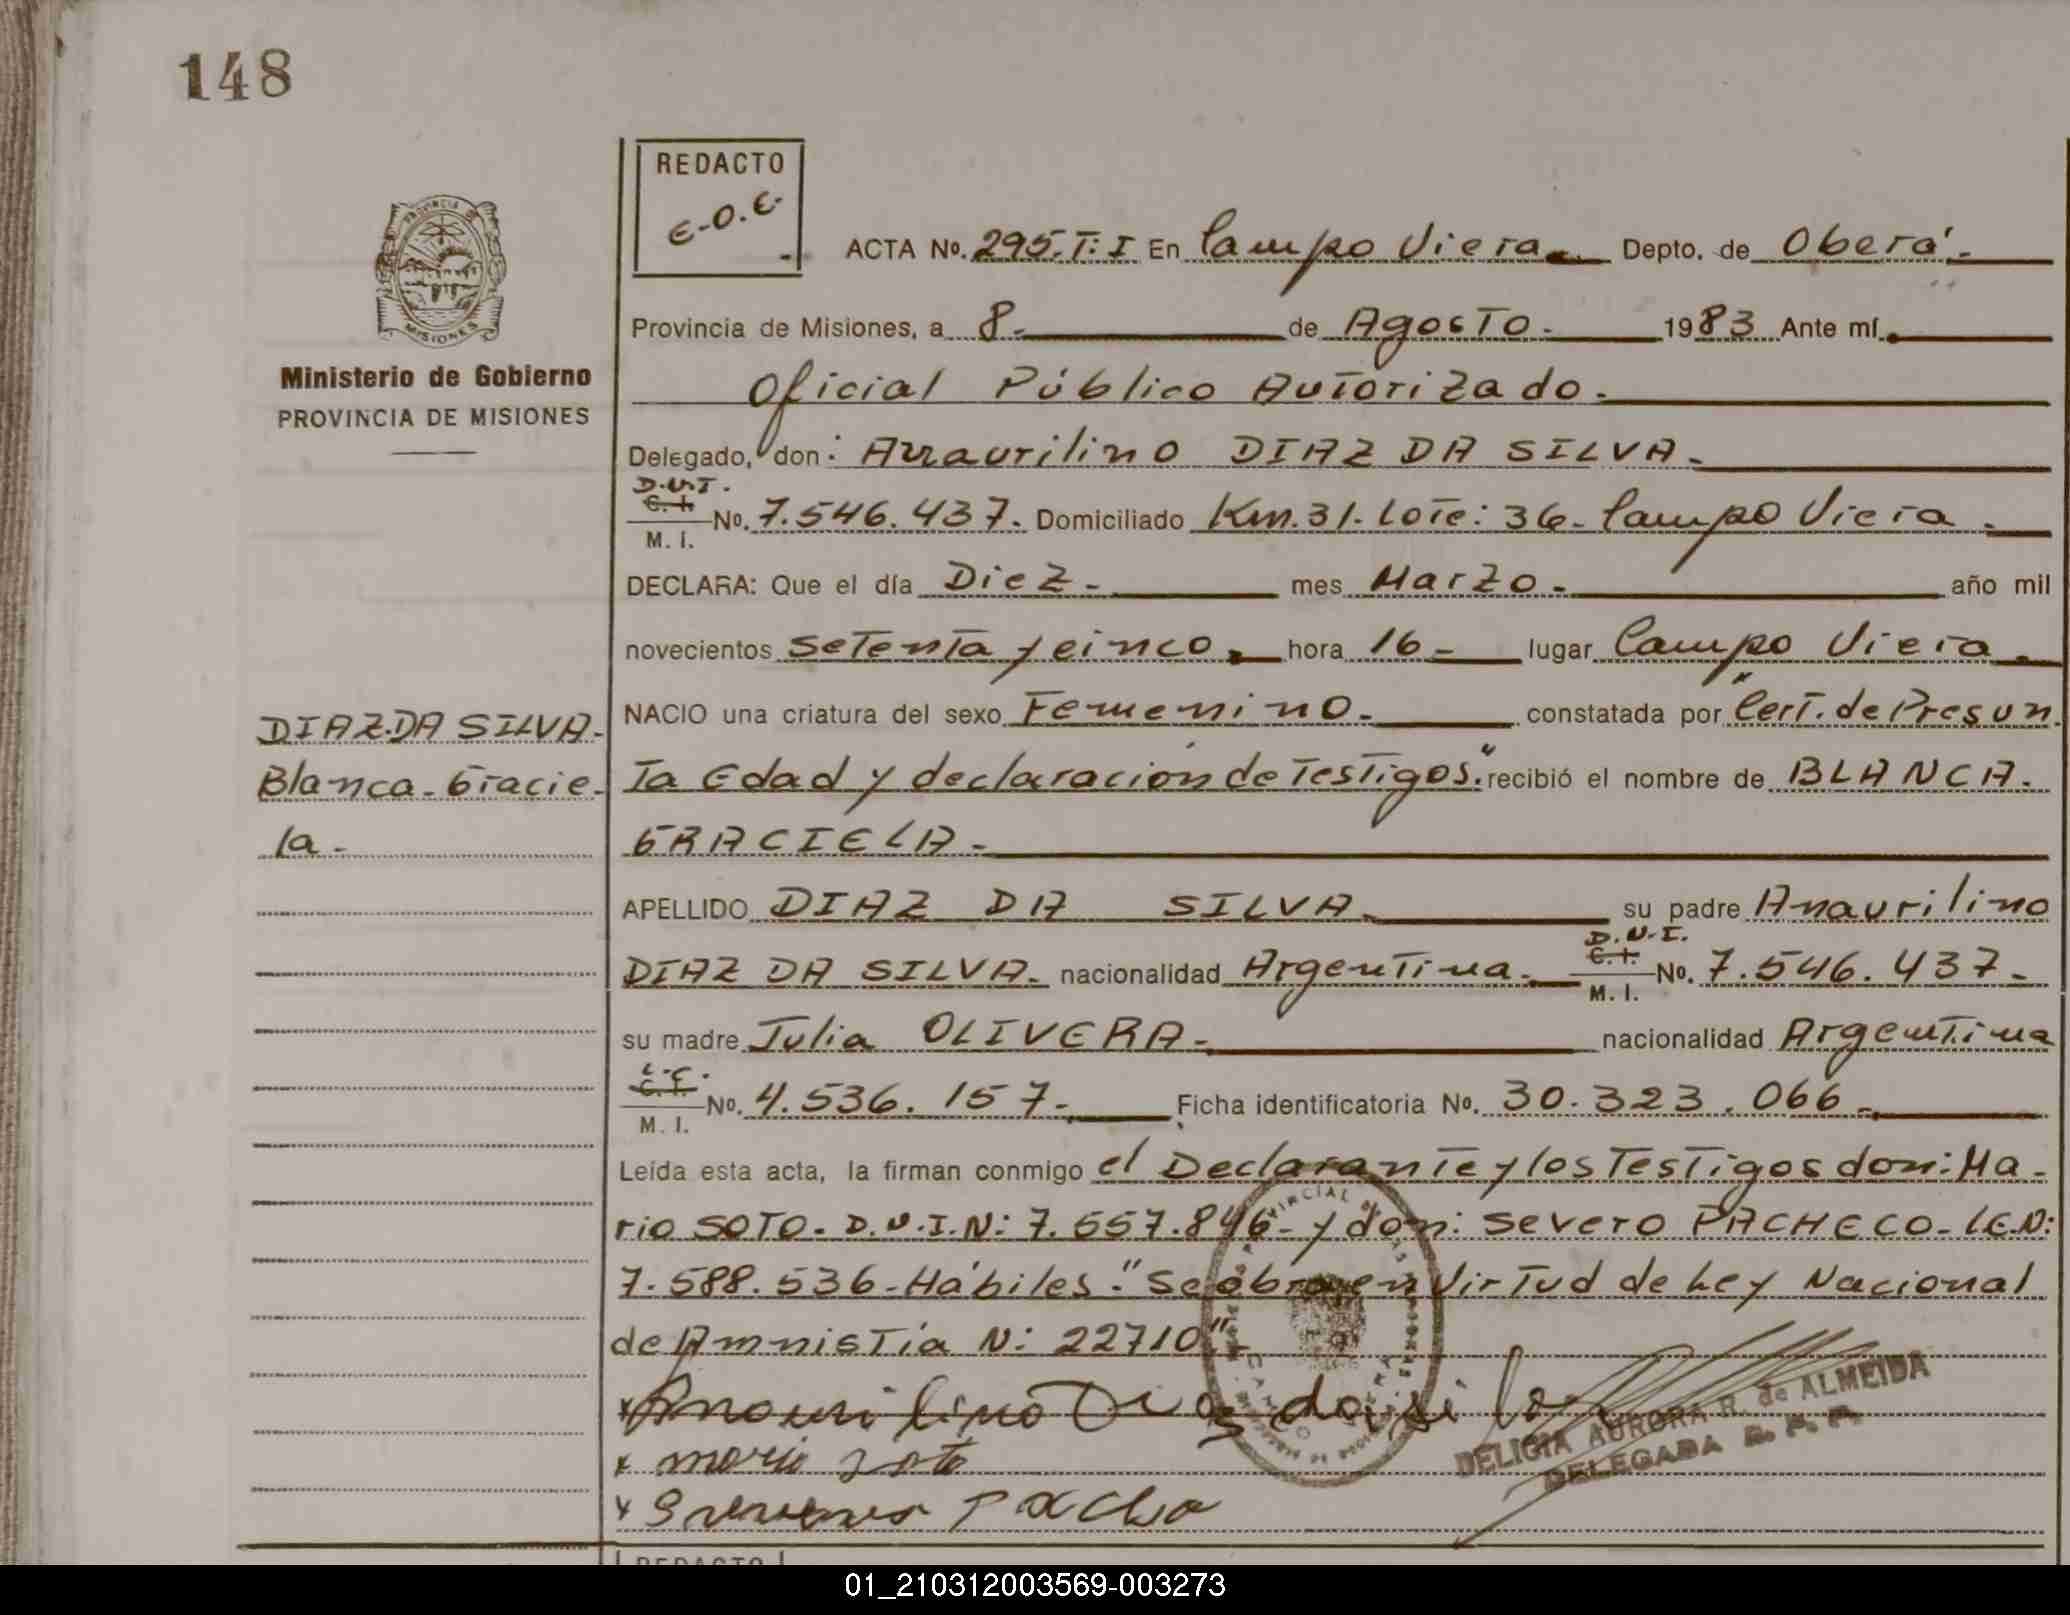 148
REDACTO
E.O.E.
PROVINCIA DE
MISIONES
Ministerio de Gobierno
PROVINCIA DE MISIONES
ACTA No. 295. T: I En Campo Viera. Depto. de Oberá.-
Provincia de Misiones, a 8.- de Agosto.- 1983 Ante mí.
Oficial Público Autorizado.-
Delegado, don: Anaurilino DIAZ DA SILVA.-
D.N.I.
C. I.
M. I. No. 7.546.437. Domiciliado Km. 31. Lote: 36- Campo Viera.-
DECLARA: Que el día Diez.- mes Marzo.- año mil
novecientos setenta y cinco.- hora 16.- lugar Campo Viera.-
NACIO una criatura del sexo Femenino.- constatada por "Cert. de Presun
DIAZ DA SILVA.-
Blanca-Gracie-
la.-
ta Edad y declaración de Testigos." recibió el nombre de BLANCA.
GRACIELA.-
APELLIDO DIAZ DA SILVA.- su padre Anaurilino
D.N.I.
C. I.
M. I.
DIAZ DA SILVA.- nacionalidad Argentina.- No. 7.546.437.-
su madre Julia OLIVERA.- nacionalidad Argentina
L.C.
C. I.
M. I. No. 4.536.157.- Ficha identificatoria No. 30.323.066.-
Leída esta acta, la firman conmigo el Declarante y los Testigos don: Ma-
rio SOTO. D.N.I.N: 7.557.846- y don: Severo PACHECO- L.E.N:
7.588.536-Hábiles." Se labra en Virtud de Ley Nacional
de Amnistía N: 22710"
x Anaurilino Diaz da silva
x mario soto
x
DELICIA AURORA R. de ALMEIDA
DELEGADA R. P. P.
REDACTO
01_210312003569-003273